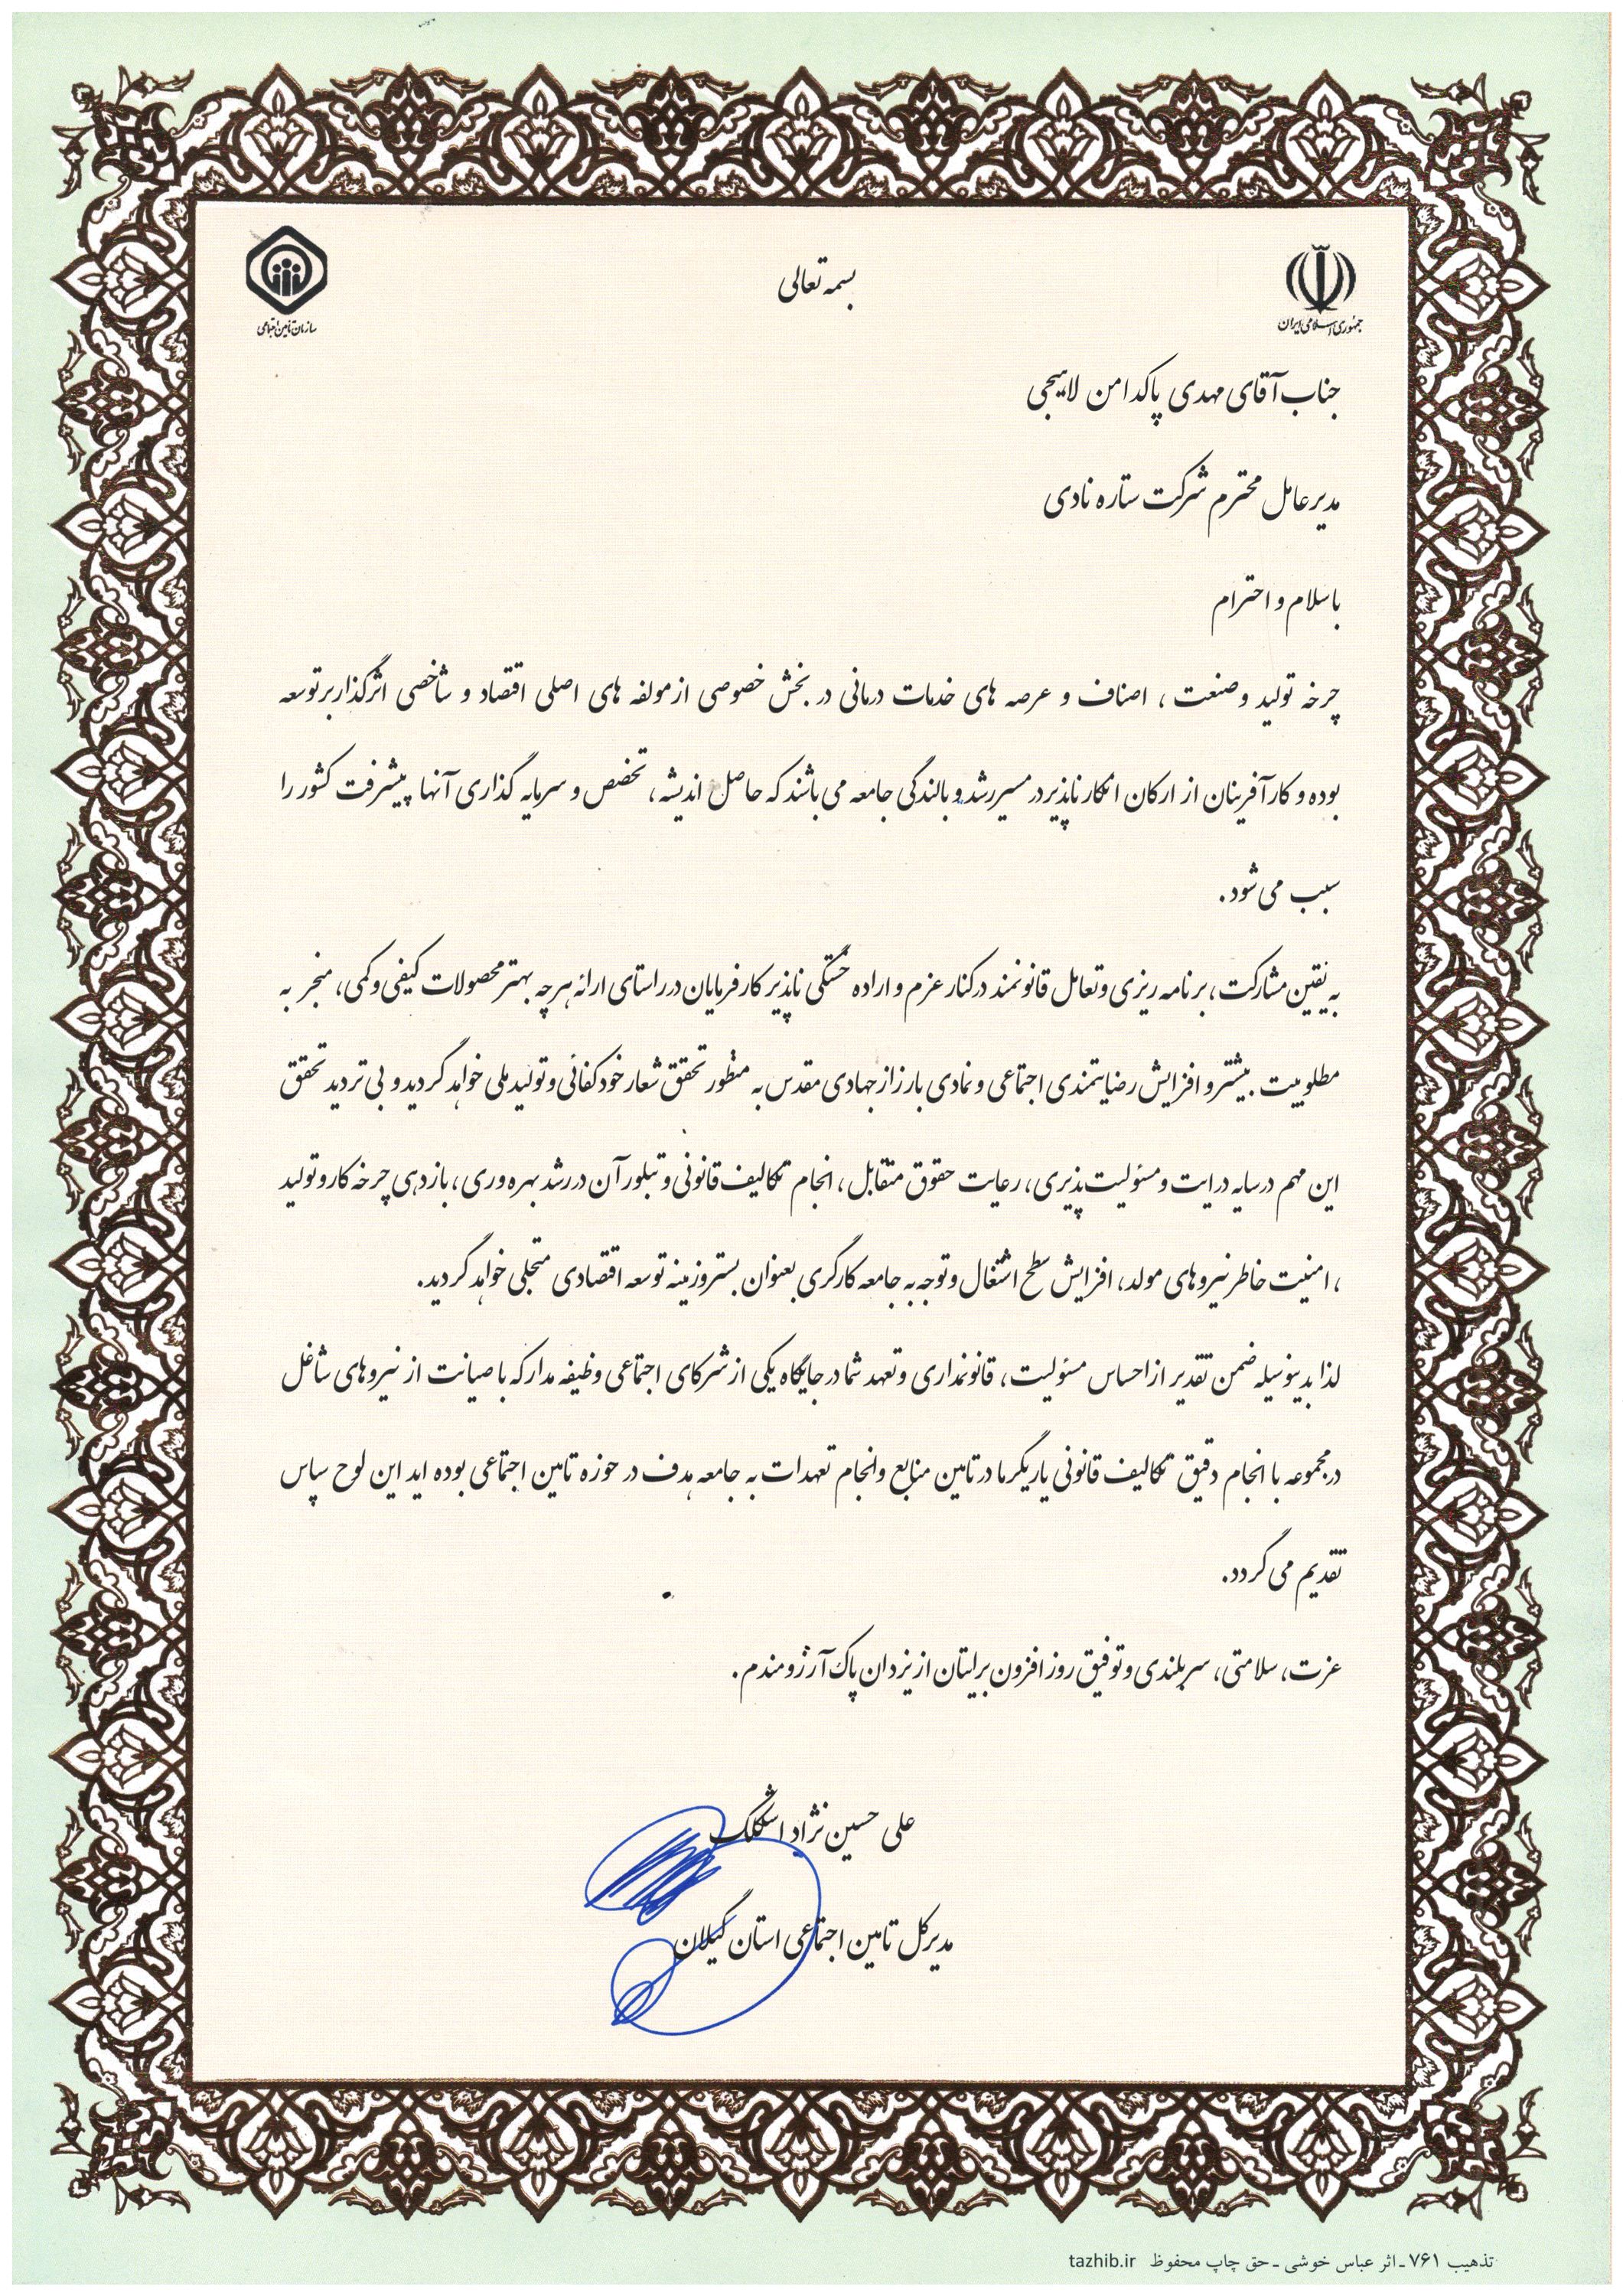 بسمه تعالی
جمهوری اسلامی ایران
سازمان تامین اجتماعی
جناب آقای مهدی پاکدامن لاهیجی
مدیرعامل محترم شرکت ستاره نادی
باسلام و احترام
چرخه تولید و صنعت ، اصناف و عرصه های خدمات درمانی در بخش خصوصی از مولفه های اصلی اقتصاد و شاخصی اثرگذار بر توسعه
بوده و کارآفرینان از ارکان انکارناپذیر در مسیر رشد و بالندگی جامعه می باشند که حاصل اندیشه، تخصص و سرمایه گذاری آنها پیشرفت کشور را
سبب می شود.
به یقین مشارکت، برنامه ریزی و تعامل قانونمند در کنار عزم و اراده خستگی ناپذیر کارفرمایان در راستای ارائه هرچه بهتر محصولات کیفی و کمی، منجر به
مطلوبیت بیشتر و افزایش رضایتمندی اجتماعی و نمادی بارز از جهادی مقدس به منظور تحقق شعار خودکفائی و تولید ملی خواهد گردید و بی تردید تحقق
این مهم در سایه درایت و مسئولیت پذیری، رعایت حقوق متقابل، انجام تکالیف قانونی و تبلور آن در رشد بهره وری، بازدهی چرخه کار و تولید
، امنیت خاطر نیروهای مولد، افزایش سطح اشتغال و توجه به جامعه کارگری بعنوان بستر و زمینه توسعه اقتصادی متجلی خواهد گردید.
لذا بدینوسیله ضمن تقدیر از احساس مسئولیت، قانونمداری و تعهد شما در جایگاه یکی از شرکای اجتماعی وظیفه مدار که با صیانت از نیروهای شاغل
در مجموعه با انجام دقیق تکالیف قانونی یاریگر ما در تامین منابع و انجام تعهدات به جامعه هدف در حوزه تامین اجتماعی بوده اید این لوح سپاس
تقدیم می گردد.
عزت، سلامتی، سربلندی و توفیق روز افزون برایتان از یزدان پاک آرزومندم.
علی حسین نژاد اشکلک
مدیرکل تامین اجتماعی استان گیلان
تذهیب ۷۶۱ ـ اثر عباس خوشی ـ حق چاپ محفوظ tazhib.ir